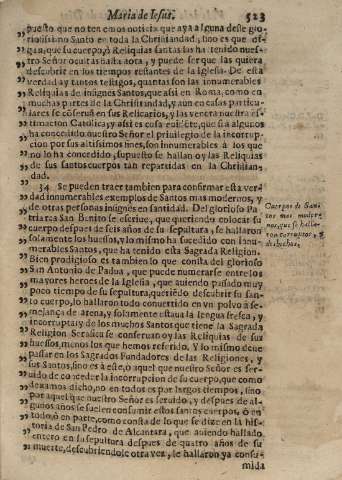 Maria de Iesus. 523
„ puesto que no tenemos noticia que aya alguna deste glo-
„ riosissimo Santo en toda la Christiandad, sino es que di-
„ gan, que su cuerpo, ò Reliquias santas las ha tenido nues-
„ tro Señor ocultas hasta aora, y puede ser que las quiera
„ descubrir en los tiempos restantes de la Iglesia. De esta
„ verdad ay tantos testigos, quantas son las innumerables
„ Reliquias de insignes Santos, que assi en Roma, como en
„ muchas partes de la Christiandad, y aun en casas particu-
„ lares se conseruan en sus Relicarios, y las venera nuestra es-
„ timacion Catolica, y assi es cosa euidēte, que si à algunos
„ ha concedido nuestro Señor el priuilegio de la incorrup-
„ cion por sus altissimos fines, son innumerables à los que
„ no lo ha concedido, supuesto se hallan oy las Reliquias
„ de sus santos cuerpos tan repartidas en la Christian-
„ dad.
„ 34 Se pueden traer tambien para confirmar esta ver-
„ dad innumerables exemplos de Santos mas modernos, y
„ de otras personas insignes en santidad. Del glorioso Pa-
„ triarca San Benito se escriue, que queriendo colocar su
„ cuerpo despues de seis años de su sepultura, se hallaron
„ solamente los huessos, y lo mismo ha sucedido con innu-
„ merables Santos, que ha tenido esta Sagrada Religion.
„ Bien prodigioso es tambien lo que consta del glorioso
„ San Antonio de Padua, que puede numerarse entre los
„ mayores heroes de la Iglesia, que auiendo passado muy
„ poco tiempo de su sepultura, queriēdo descubrir su san-
„ to cuerpo, lo hallaron todo conuertido en vn poluo à se-
„ mejança de arena, y solamente estaua la lengua fresca, y
„ incorrupta; y de los muchos Santos que tiene la Sagrada
„ Religion Serafica se conseruan oy las Reliquias de sus
„ huessos, menos los que hemos referido. Y lo mismo deue
„ passar en los Sagrados Fundadores de las Religiones, y
„ sus Santos, sino es à este, ò aquel que nuestro Señor es ser-
„ uido de conceder la incorrupcion de su cuerpo, que como
„ dexamos dicho, no en todos es por largos tiempos, sino
„ por aquel que nuestro Señor es seruido, y despues de al-
„ gunos años se suelen consumir estos santos cuerpos, ò en
„ todo, ò en parte, como consta de lo que se dize en la his-
„ toria de San Pedro de Alcantara, que auiendo hallado
„ entero en su sepultura despues de quatro años de su
„ muerte, descubriendole otra vez, le hallaron ya consu-
mida
Cuerpos de San-
tos mas moder-
nos, que se halla-
ron corruptos, y
deshechos.